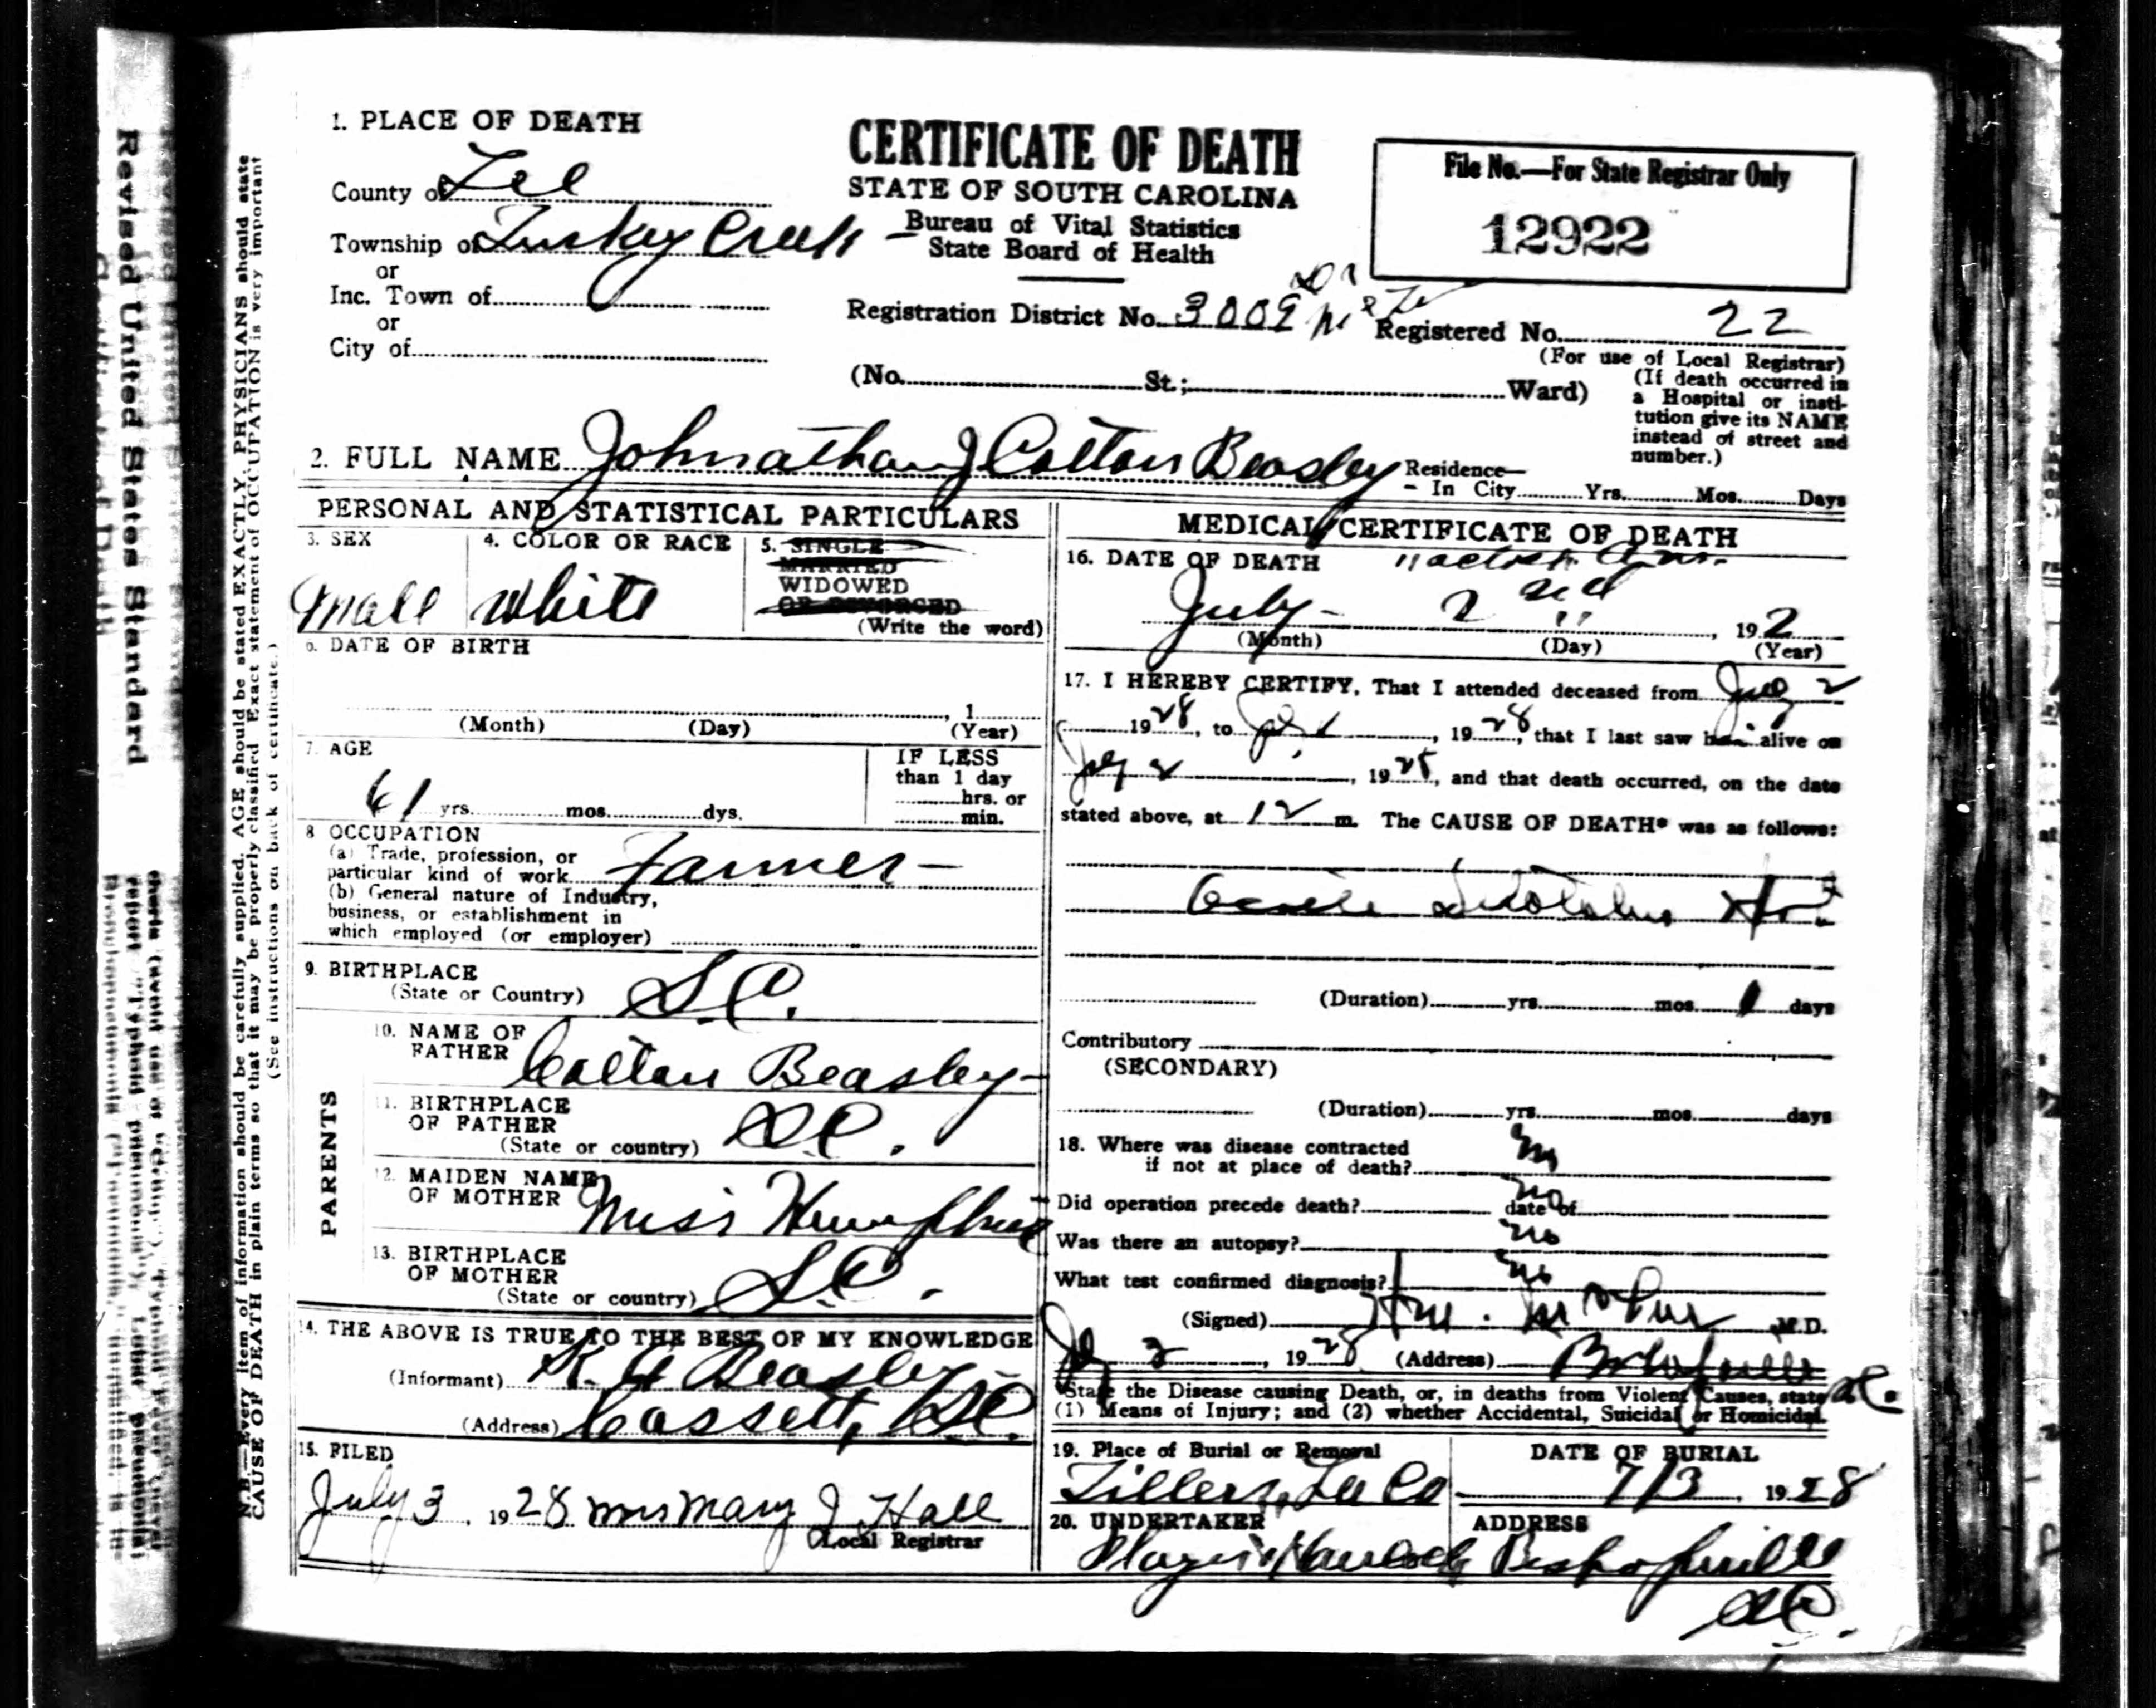 1. PLACE OF DEATH
County of Lee
Township of Turkey Creek
or
Inc. Town of
or
City of
CERTIFICATE OF DEATH
STATE OF SOUTH CAROLINA
Bureau of Vital Statistics
State Board of Health
File No.—For State Registrar Only
12922
Registration District No. 3009
Registered No. 22
(For use of Local Registrar)
(No. St.; Ward)
(If death occurred in
a Hospital or insti-
tution give its NAME
instead of street and
number.)
2. FULL NAME Johnathan J Colton Beasley
Residence—
In City Yrs. Mos. Days
PERSONAL AND STATISTICAL PARTICULARS
3. SEX
Male
4. COLOR OR RACE
White
5. SINGLE
MARRIED
WIDOWED
OR DIVORCED
(Write the word)
6. DATE OF BIRTH
, 1
(Month) (Day) (Year)
7. AGE
61 yrs. mos. dys.
IF LESS
than 1 day
hrs. or
min.
8 OCCUPATION
(a) Trade, profession, or
particular kind of work Farmer
(b) General nature of Industry,
business, or establishment in
which employed (or employer)
9. BIRTHPLACE
(State or Country) S.C.
PARENTS
10. NAME OF
FATHER Colton Beasley
11. BIRTHPLACE
OF FATHER
(State or country) S.C.
12. MAIDEN NAME
OF MOTHER Miss
13. BIRTHPLACE
OF MOTHER
(State or country) S.C.
14. THE ABOVE IS TRUE TO THE BEST OF MY KNOWLEDGE
(Informant) Beasley
(Address) Cassett, S.C.
15. FILED
July 3, 1928 Mrs Mary J Hall
Local Registrar
MEDICAL CERTIFICATE OF DEATH
16. DATE OF DEATH 11
July 2nd, 192
(Month) (Day) (Year)
17. I HEREBY CERTIFY, That I attended deceased from July 2
1928, to , 1928, that I last saw alive on
July 2, 19 , and that death occurred, on the date
stated above, at 12 m. The CAUSE OF DEATH* was as follows:
(Duration) yrs. mos. 1 days
Contributory
(SECONDARY)
(Duration) yrs. mos. days
18. Where was disease contracted
if not at place of death?
Did operation precede death? no date of
Was there an autopsy? no
What test confirmed diagnosis? no
(Signed) M.D.
1928 (Address) Bishopville S.C.
*State the Disease causing Death, or, in deaths from Violent Causes, state
(1) Means of Injury; and (2) whether Accidental, Suicidal or Homicidal.
19. Place of Burial or Removal
Tillers, Lee Co
DATE OF BURIAL
7/3, 1928
20. UNDERTAKER
ADDRESS
Bishopville
S.C.
N.B.—Every item of information should be carefully supplied. AGE should be stated EXACTLY. PHYSICIANS should state
CAUSE OF DEATH in plain terms so that it may be properly classified. Exact statement of OCCUPATION is very important
(See instructions on back of certificate.)
Revised United States Standard